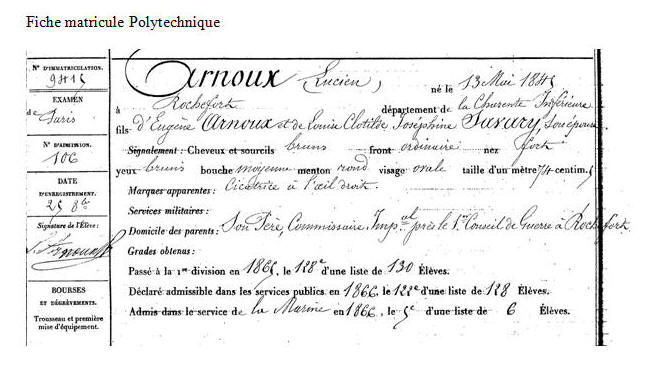 Fiche matricule Polytechnique
N° D'IMMATRICULATION.
9415
EXAMEN
de Paris
N° D'ADMISSION.
106
DATE
D'ENREGISTREMENT.
25 8bre
Signature de l'Élève:
L. Arnoux
BOURSES
ET DÉGRÈVEMENTS.
Trousseau et première
mise d'équipement.
Arnoux Lucien, né le 13 Mai 1845
à Rochefort département de la Charente Inférieure
fils d'Eugène Arnoux et de Louise Clotilde Joséphine Savary, son épouse
Signalement : Cheveux et sourcils bruns front ordinaire nez fort
yeux bruns bouche moyenne menton rond visage ovale taille d'un mètre 74 centim.s
Marques apparentes : Cicatrice à l'œil droit.
Services militaires :
Domicile des parents : Son Père, Commissaire Imp.al près le 1er Conseil de Guerre à Rochefort
Grades obtenus :
Passé à la 1re division en 1865, le 128e d'une liste de 130 Élèves.
Déclaré admissible dans les services publics en 1866, le 122e d'une liste de 128 Élèves.
Admis dans le service de la Marine en 1866, le 5e d'une liste de 6 Élèves.